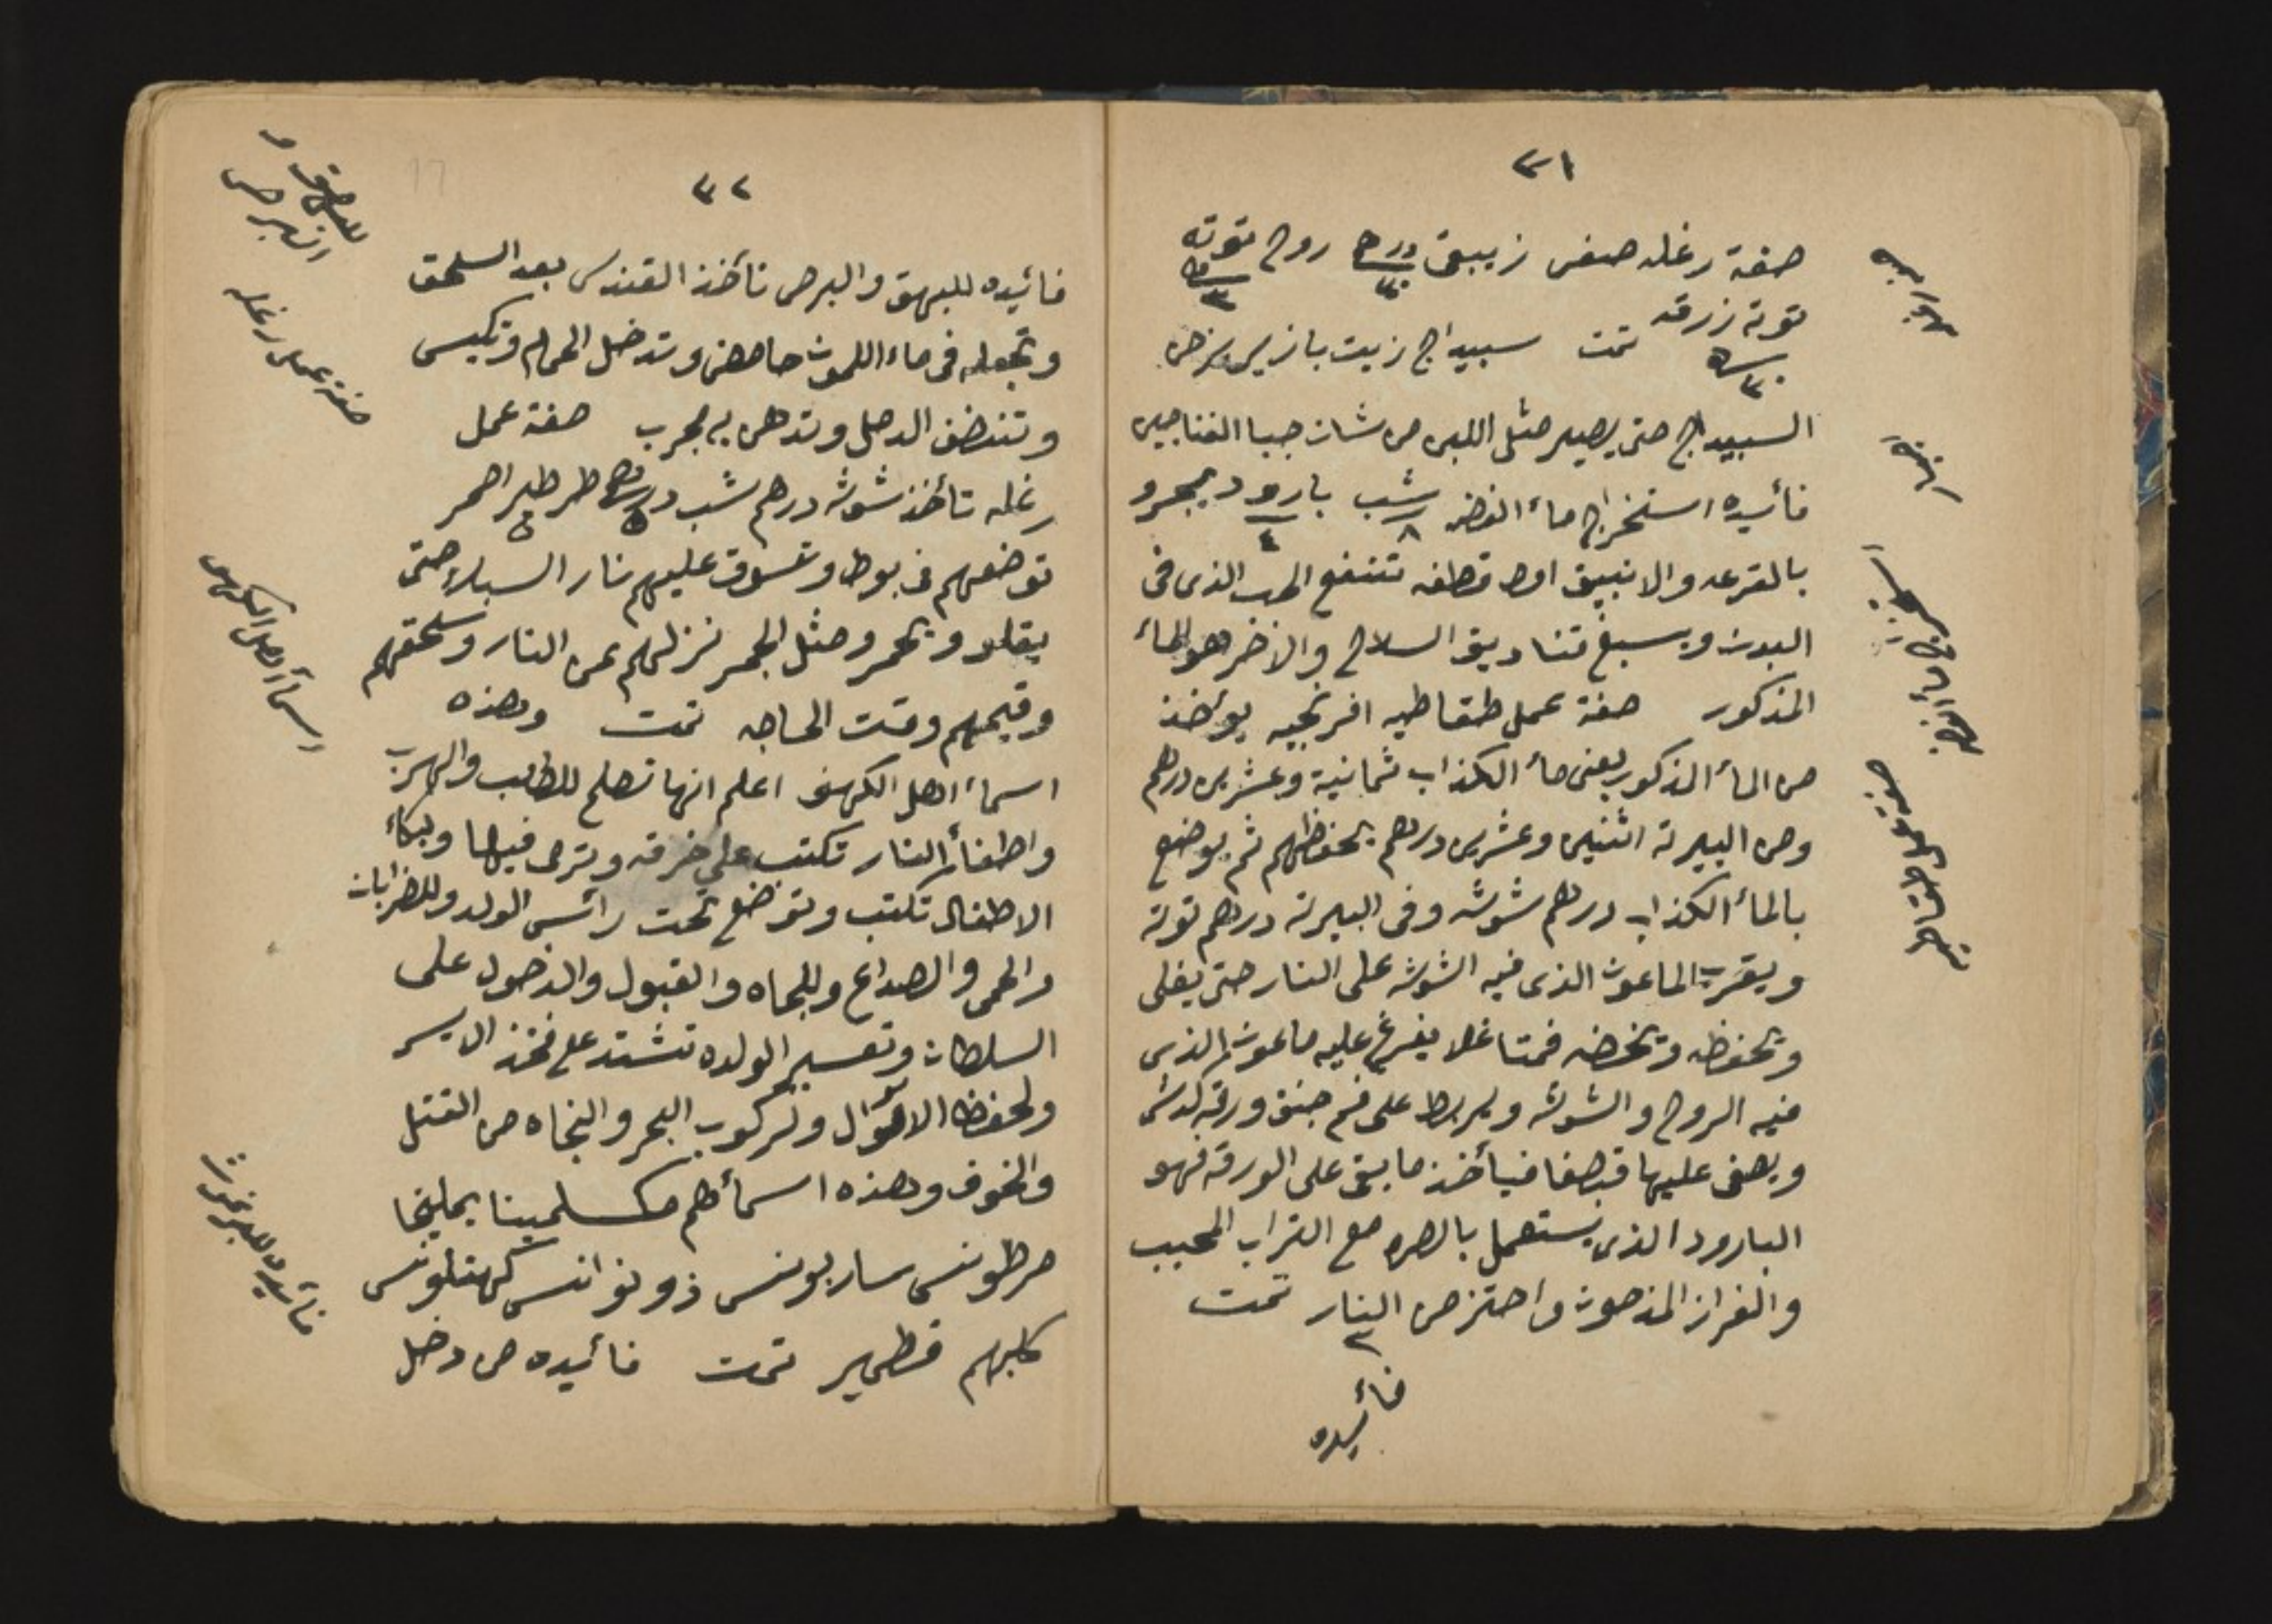 ٣١
صفة رغله صفى زيبق درهم ٣٠ روح توته درهم ٣
توته زرقه درهم ٣٠ تمت سبيداج زيت بازير
السبيداج حتى يصير مثل اللبن من شان جبا الفناجين
فائيده استخراج ماء الفضه شب ٨ بارود ٤
بالقرعه والانبيق اول قطفه تنفع الحب الذى فى
البدن ويسبغ قناديق السلاح والاخر هو الماء
المذكور صفة عمل طقاطيه افرنجيه يوأخذ
من الماء المذكور يعنى ماء الكذاب ثمانية وعشرين درهم
ومن البيرة اثنين وعشرين درهم بحفظهم ثم يوضع
بالماء الكذاب درهم شوشه وفى البيرة درهم توتة
ويقرب الماعون الذى فيه الشوشه على النار حتى يغلى
وتحفظه وتخضه فمتا غلا يفرغ عليه ماعون الذى
فيه الروح والشوشه ويربط على فم جنق ورقة كدش
ويصفى عليها قبصفا فيأخذ ما بقى على الورقة فهو
البارود الذى يستعمل بالصره مع التراب المحبب
والفراز المذحون واحتزص النار تمت
٢
فائيده
استخراج ماء الفضه
صفة عمل طقاطيه
٣٢
فائيده للبهق والبرص تأخذ القندس بعد السلحق
وتجعله فى ماء اللمون حامض وتدخل الحمام وتكيس
وتنضف الدحل وتدهن به مجرب صفة عمل
رغله تأخذ شوشه درهم شب درهم ٥ طرطير احمر ٥
توضعهم فى بوط وتسوق عليهم نار السبك حتى
يقلو ويحمرو مثل الجمر نزلهم عن النار وسحقهم
وقيمهم وقت الحاجه تمت وهذه
اسماء اهل الكهف اعلم انها تصلح للطلب والهرب
واطفاء النار تكتب على خرقه وترمى فيها ولبكاء
الاطفال تكتب وتوضع تحت رأس الولد وللضرابان
والحمى والصداع وللجاه والقبول والدخول على
السلطان وتعسير الولده تشتد على فخذ الايسر
ولحفظ الاموال ولركوب البحر والنجاه من القتل
والخوف وهذه اسمأهم مكسلمينا يمليخا
مرطونس ساربونس ذونوانس كهفلونس
كلبهم قطمير تمت فائيده من دخل
للبهق و
البرص
صفة عمل رغله
اسماء اهل الكهف
فائيده للبرغوث